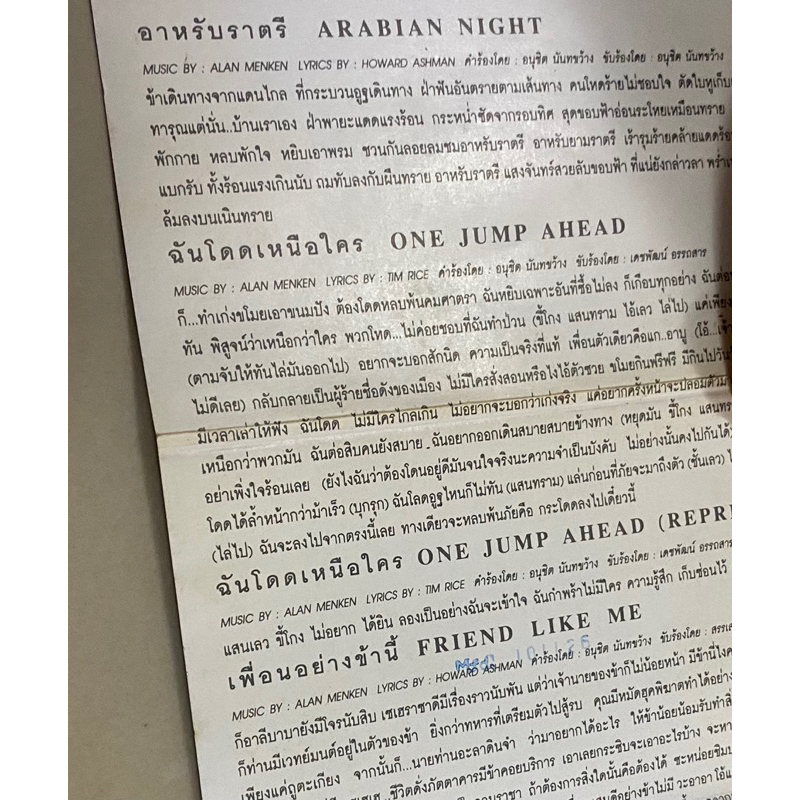 อาหรับราตรี ARABIAN NIGHT
MUSIC BY : ALAN MENKEN LYRICS BY : HOWARD ASHMAN คำร้องโดย : อนุชิต นันทขว้าง ขับร้องโดย : อนุชิต นันทขว้าง
ข้าเดินทางจากแดนไกล ที่กระบวนอูฐเดินทาง ฝ่าฟันอันตรายตามเส้นทาง คนโหดร้ายไม่ชอบใจ ตัดใบหูเก็บ
ทารุณแต่นั่น..บ้านเราเอง ฝ่าพายุแดดแรงร้อน กระหน่ำซัดจากรอบทิศ สุดขอบฟ้าอ่อนระโหยเหมือนทราย
พักกาย หลบพักใจ หยิบเอาพรม ชวนกันลอยลมชมอาหรับราตรี อาหรับยามราตรี เร้ารุมร้ายคล้ายแดดร้อ
แบกรับ ทั้งร้อนแรงเกินนับ ถมทับลงกับผืนทราย อาหรับราตรี แสงจันทร์สวยลับขอบฟ้า ที่แน่ยังกล่าวลา
ล้มลงบนเนินทราย
ฉันโดดเหนือใคร ONE JUMP AHEAD
MUSIC BY : ALAN MENKEN LYRICS BY : TIM RICE คำร้องโดย : อนุชิต นันทขว้าง ขับร้องโดย : เดชพัฒน์ อรรถสาร
ก็...ทำเก่งขโมยเอาขนมปัง ต้องโดดหลบพ้นคมศาตรา ฉันหยิบเฉพาะอันที่ซื้อไม่ลง ก็เกือบทุกอย่าง ฉันตอ
ทัน พิสูจน์ว่าเหนือกว่าใคร พวกโหด...ไม่ค่อยชอบที่ฉันทำป่วน (ขี้โกง แสนทราม ไอ้เลว ไล่ไป) แค่เพียง
(ตามจับให้ทันไล่มันออกไป) อยากจะบอกสักนิด ความเป็นจริงที่แท้ เพื่อนตัวเดียวคือแก..อาบู (โอ้...เจ้า
ไม่ดีเลย) กลับกลายเป็นผู้ร้ายชื่อดังของเมือง ไม่มีใครสั่งสอนหรือไงไอ้ตัวซวย ขโมยกินฟรีฟรี มีกินไปวัน
มีเวลาเล่าให้ฟัง ฉันโดด ไม่มีใครไกลเกิน ไม่อยากจะบอกว่าเก่งจริง แค่อยากครั้งหน้าจะปลอมตัวม
เหนือกว่าพวกมัน ฉันต่อสิบคนยังสบาย ฉันอยากออกเดินสบายสบายข้างทาง (หยุดมัน ขี้โกง แสนทรา
อย่าเพิ่งใจร้อนเลย (ยังไงฉันว่าต้องโดนอยู่ดีมันจนใจจริงนะความจำเป็นบังคับ ไม่อย่างนั้นคงไปกันได้)
โดดได้ล้ำหน้ากว่าม้าเร็ว (บุกรุก) ฉันโลดอูฐไหนก็ไม่ทัน (แสนทราม) แล่นก่อนที่ภัยจะมาถึงตัว (ชั้นเลว)
(ไล่ไป) ฉันจะลงไปจากตรงนี้เลย ทางเดียวจะหลบพ้นภัยคือ กระโดดลงไปเดี๋ยวนี้
ฉันโดดเหนือใคร ONE JUMP AHEAD (REPRI
MUSIC BY : ALAN MENKEN LYRICS BY : TIM RICE คำร้องโดย : อนุชิต นันทขว้าง ขับร้องโดย : เดชพัฒน์ อรรถสาร
แสนเลว ขี้โกง ไม่อยาก ได้ยิน ลองเป็นอย่างฉันจะเข้าใจ ฉันกำพร้าไม่มีใคร ความรู้สึก เก็บซ่อนไว้
เพื่อนอย่างข้านี้ FRIEND LIKE ME
MUSIC BY : ALAN MENKEN LYRICS BY : HOWARD ASHMAN คำร้องโดย : อนุชิต นันทขว้าง ขับร้องโดย :
ก็อาลีบาบายังมีโจรนับสิบ เซเฮราซาดีมีเรื่องราวนับพัน แต่ว่าเจ้านายของข้าก็ไม่น้อยหน้า มีข้านี่ไงค
ก็ท่านมีเวทย์มนต์อยู่ในตัวของข้า ยิ่งกว่าทหารที่เตรียมตัวไปสู้รบ คุณมีหมัดฮุคพิฆาตทำได้อย่าง
เพียงแค่ถูตะเกียง จากนั้นก็...นายท่านอะลาดินจ๋า ว่ามาอยากได้อะไร ให้ข้าน้อยน้อมรับทำสิ
...ชีวิตดั่งภัตตาคารมีข้าคอยบริการ เอาเลยกระซิบจะเอาอะไรบ้าง จะหา
ถ้าต้องการสิ่งใดนั้นคือต้องได้ ชะหน่อยชิม